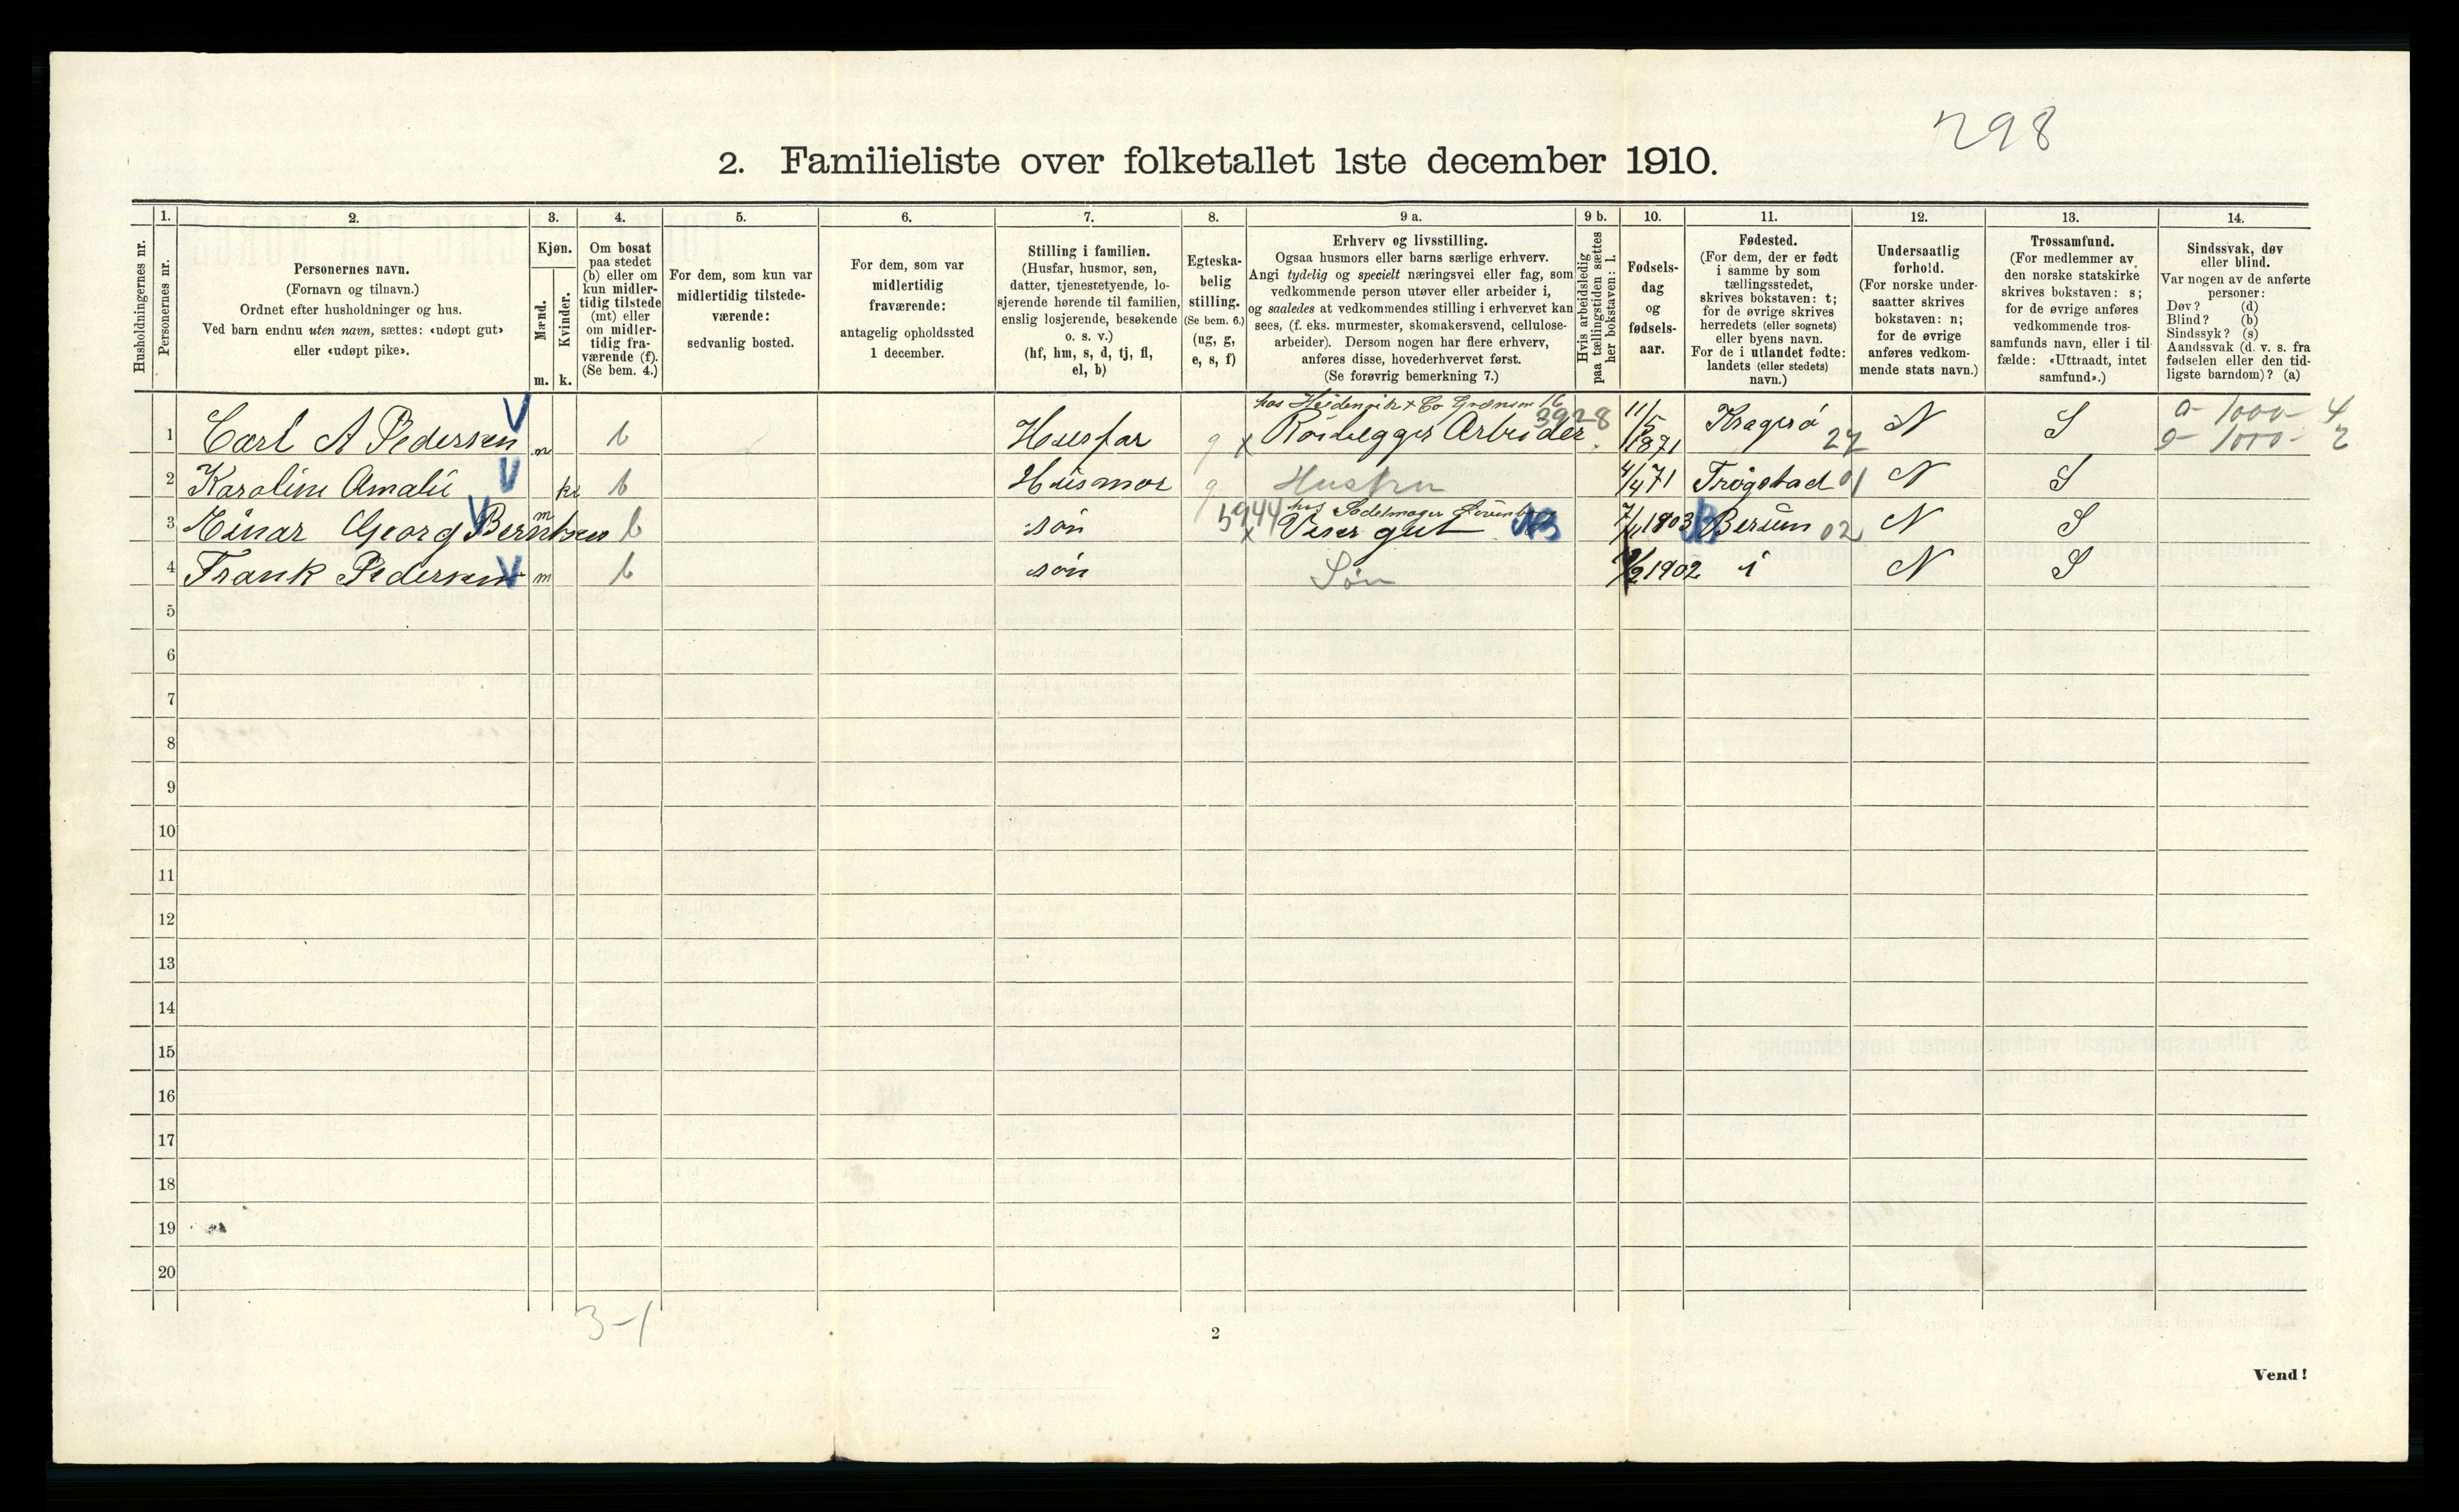 298
2. Familieliste over folketallet 1ste december 1910.
1. 2. 3. 4. 5. 6. 7. 8. 9 a. 9 b. 10. 11. 12. 13. 14.
Husholdningernes nr.
Personernes nr.
Personernes navn.
(Fornavn og tilnavn.)
Ordnet efter husholdninger og hus.
Ved barn endnu uten navn, sættes: «udøpt gut»
eller «udøpt pike».
Kjøn.
Mænd.
Kvinder.
m. k.
Om bosat
paa stedet
(b) eller om
kun midler-
tidig tilstede
(mt) eller
om midler-
tidig fra-
værende (f).
(Se bem. 4.)
For dem, som kun var
midlertidig tilstede-
værende:
sedvanlig bosted.
For dem, som var
midlertidig
fraværende:
antagelig opholdssted
1 december.
Stilling i familien.
(Husfar, husmor, søn,
datter, tjenestetyende, lo-
sjerende hørende til familien,
enslig losjerende, besøkende
o. s. v.)
(hf, hm, s, d, tj, fl,
el, b)
Egteska-
belig
stilling.
(Se bem. 6.)
(ug, g,
e, s, f)
Erhverv og livsstilling.
Ogsaa husmors eller barns særlige erhverv.
Angi tydelig og specielt næringsvei eller fag, som
vedkommende person utøver eller arbeider i,
og saaledes at vedkommendes stilling i erhvervet kan
sees, (f. eks. murmester, skomakersvend, cellulose-
arbeider). Dersom nogen har flere erhverv,
anføres disse, hovederhvervet først.
(Se forøvrig bemerkning 7.)
Hvis arbeidsledig
paa tællingstiden sættes
her bokstaven: l.
Fødsels-
dag
og
fødsels-
aar.
Fødested.
(For dem, der er født
i samme by som
tællingsstedet,
skrives bokstaven: t;
for de øvrige skrives
herredets (eller sognets)
eller byens navn.
For de i utlandet fødte:
landets (eller stedets)
navn.)
Undersaatlig
forhold.
(For norske under-
saatter skrives
bokstaven: n;
for de øvrige
anføres vedkom-
mende stats navn.)
Trossamfund.
(For medlemmer av
den norske statskirke
skrives bokstaven: s;
for de øvrige anføres
vedkommende tros-
samfunds navn, eller i til-
fælde: «Uttraadt, intet
samfund».)
Sindssvak, døv
eller blind.
Var nogen av de anførte
personer:
Døv? (d)
Blind? (b)
Sindssyk? (s)
Aandssvak (d. v. s. fra
fødselen eller den tid-
ligste barndom)? (a)
hos & Co 16 3928 11/5 1000 4
1 Carl A Pedersen V m b Husfar g x Rörlegger Arbeider 1871 Kragerö 27 N S 1000 2
2 Karoline Amalie V k b Husmor g Hustru 4/4 71 Trögstad 01 N S
5944 hos Sadelmager
3 Einar Georg Berntsen V m b sön x Viser gut NB 1903 Berum 02 N S
4 Frank Pedersen V m b sön Søn 1902 i N S
5
6
7
8
9
10
11
12
13
14
15
16
17
18
19
20
3-1
2
Vend!